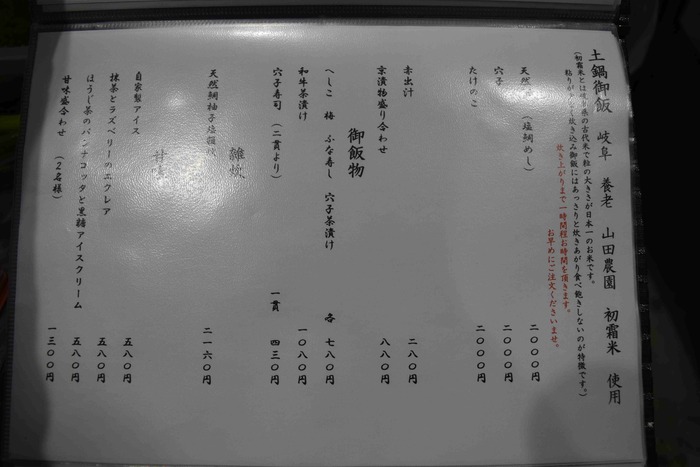 土鍋御飯 岐阜 養老 山田農園 初霜米 使用
(初霜米とは岐阜県の古代米で粒の大きさが日本一のお米です。
粘りが 炊き込み御飯にはあっさりと炊きあがり食べ飽きしないのが特徴です。)
炊き上がりまで一時間程お時間を頂きます。
お早めにご注文くださいませ。
天然 (塩鯛めし) 二〇〇〇円
穴子 二〇〇〇円
たけのこ 二〇〇〇円
赤出汁 二八〇円
京漬物盛り合わせ 八八〇円
御飯物
へしこ 梅 ふな寿し 穴子茶漬け 各 七八〇円
和牛茶漬け 一〇八〇円
穴子寿司 (二貫より) 一貫 四三〇円
雑炊
天然鯛柚子塩雑炊 二一六〇円
甘味
自家製アイス 五八〇円
抹茶とラズベリーのエクレア 五八〇円
ほうじ茶のパンナコッタと黒糖アイスクリーム 五八〇円
甘味盛合わせ (2名様) 一三〇〇円